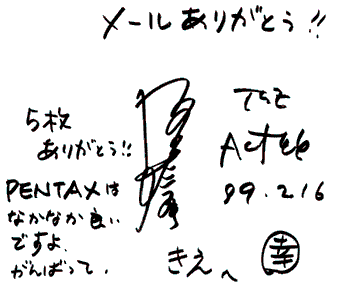 メールありがとう!!
5枚
ありがとう!!
PENTAXは
なかなか良い
ですよ.
がんばって.
99.2.16
きえへ
幸